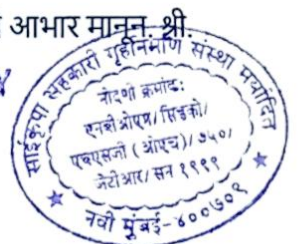 आभार मानून. श्री.
साईकृपा सहकारी गृहनिर्माण संस्था मर्यादित
नोंदणी क्रमांक:
एनबीओएम/ सिडको/
एचएसजी (ओएच)/ ७५०/
जेटीआर/ सन १९९९
नवी मुंबई-४००७०९